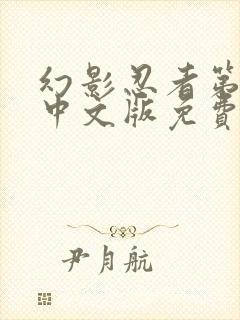 幻影忍者第
中文版免费
尹月航